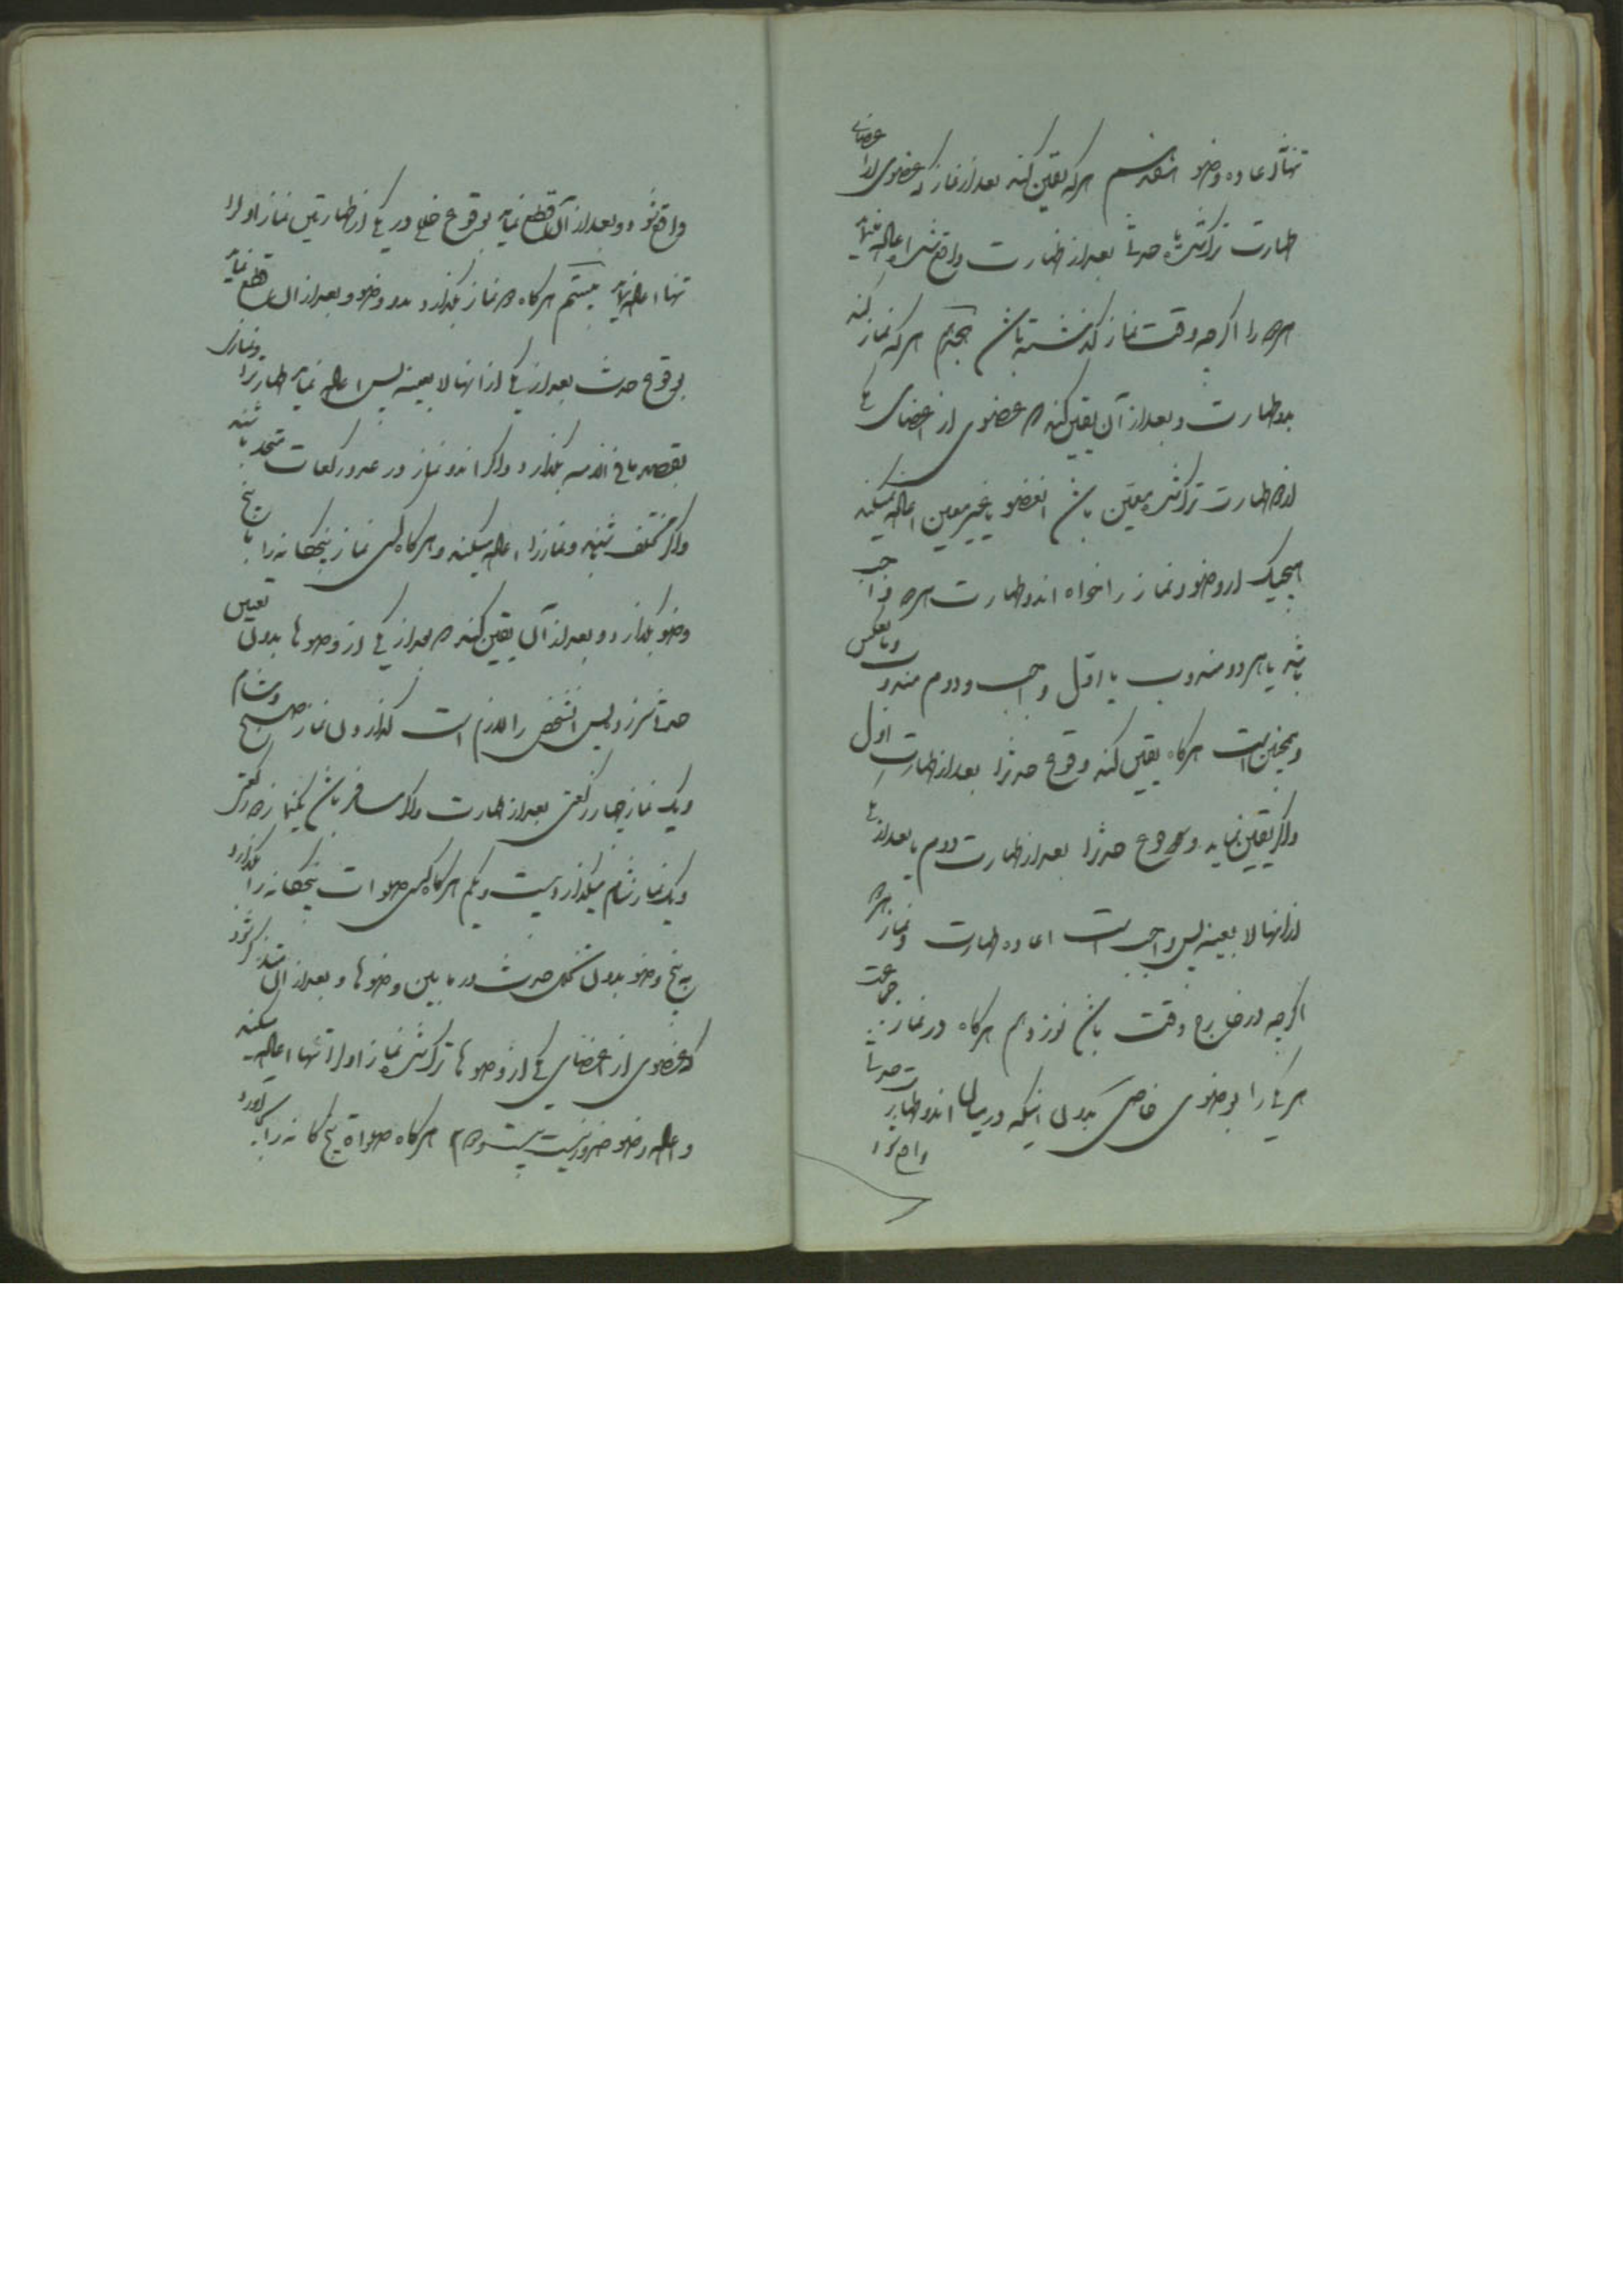 تنها اعاده وضو هفدهم هرکه یقین کند بعد از نماز که عضوی از اعضای
طهارت ترک شده یا حدثی بعد از طهارت واقع شده اعاده نماید
هر دو را اگرچه وقت نماز گذشته باشد هجدهم هرکه نماز کند
بدو طهارت و بعد از آن یقین کند که عضوی از اعضای یکی
از دو طهارت ترک شده معین باشد انعضو یا غیر معین اعاده نمیکند
هیچیک از وضو و نماز را خواه اندو طهارت هر دو واجب
باشد یا هر دو مندوب یا اول واجب و دوم مندوب و بالعکس
و همچنین است هرکاه یقین کند وقوع حدثرا بعد از طهارت اول
و اگر یقین نماید وقوع حدثرا بعد از طهارت دوم یا بعد از یکی
از آنها لا بعینه پس واجبست اعاده طهارت و نماز هر دو
اگرچه در خارج وقت باشد نوزدهم هرکاه در نماز
هر یکی را بوضوی خاصی بدون اینکه در میان اندو طهارت حدثی
واقع شود
واقع شود و بعد از آن قطع نماید بوقوع خللی در یکی از طهارتین نماز اول را
تنها اعاده نماید بیستم هرکاه دو نماز بگذارد بدو وضو و بعد از آن قطع نماید
بوقوع حدث بعد از یکی از انها لا بعینه پس اعاده نماید طهارترا و نمازی
بقصد ما فی الذمه بگذارد و اگر اندو نماز در عدد رکعات متحد باشند
و اگر مختلف شدند دو نمازرا اعاده میکند و هرکاه کسی نماز پنجگانه را با پنج
وضو بگذارد و بعد از آن یقین کند که بعد از یکی از وضوها بدون تعیین
حدثی سرزد پس انشخص را لازم است گذاردن نماز صبح و شام
و یک نماز چهار رکعتی بعد از طهارت و اگر مسافر باشد یکنماز دو رکعتی
و یک نماز شام میگذارد بیست و یکم هرکاه کسی صلوات پنجگانه را بگذارد
به پنج وضو بدون تخلل حدث در ما بین وضوها و بعد از آن متذکر شود
که عضوی از اعضای یکی از وضوها ترک شده نماز اول را تنها اعاده میکند
و اعاده وضو ضرور نیست بیست و دوم هرکاه صلوات پنجگانه را بجا آورد